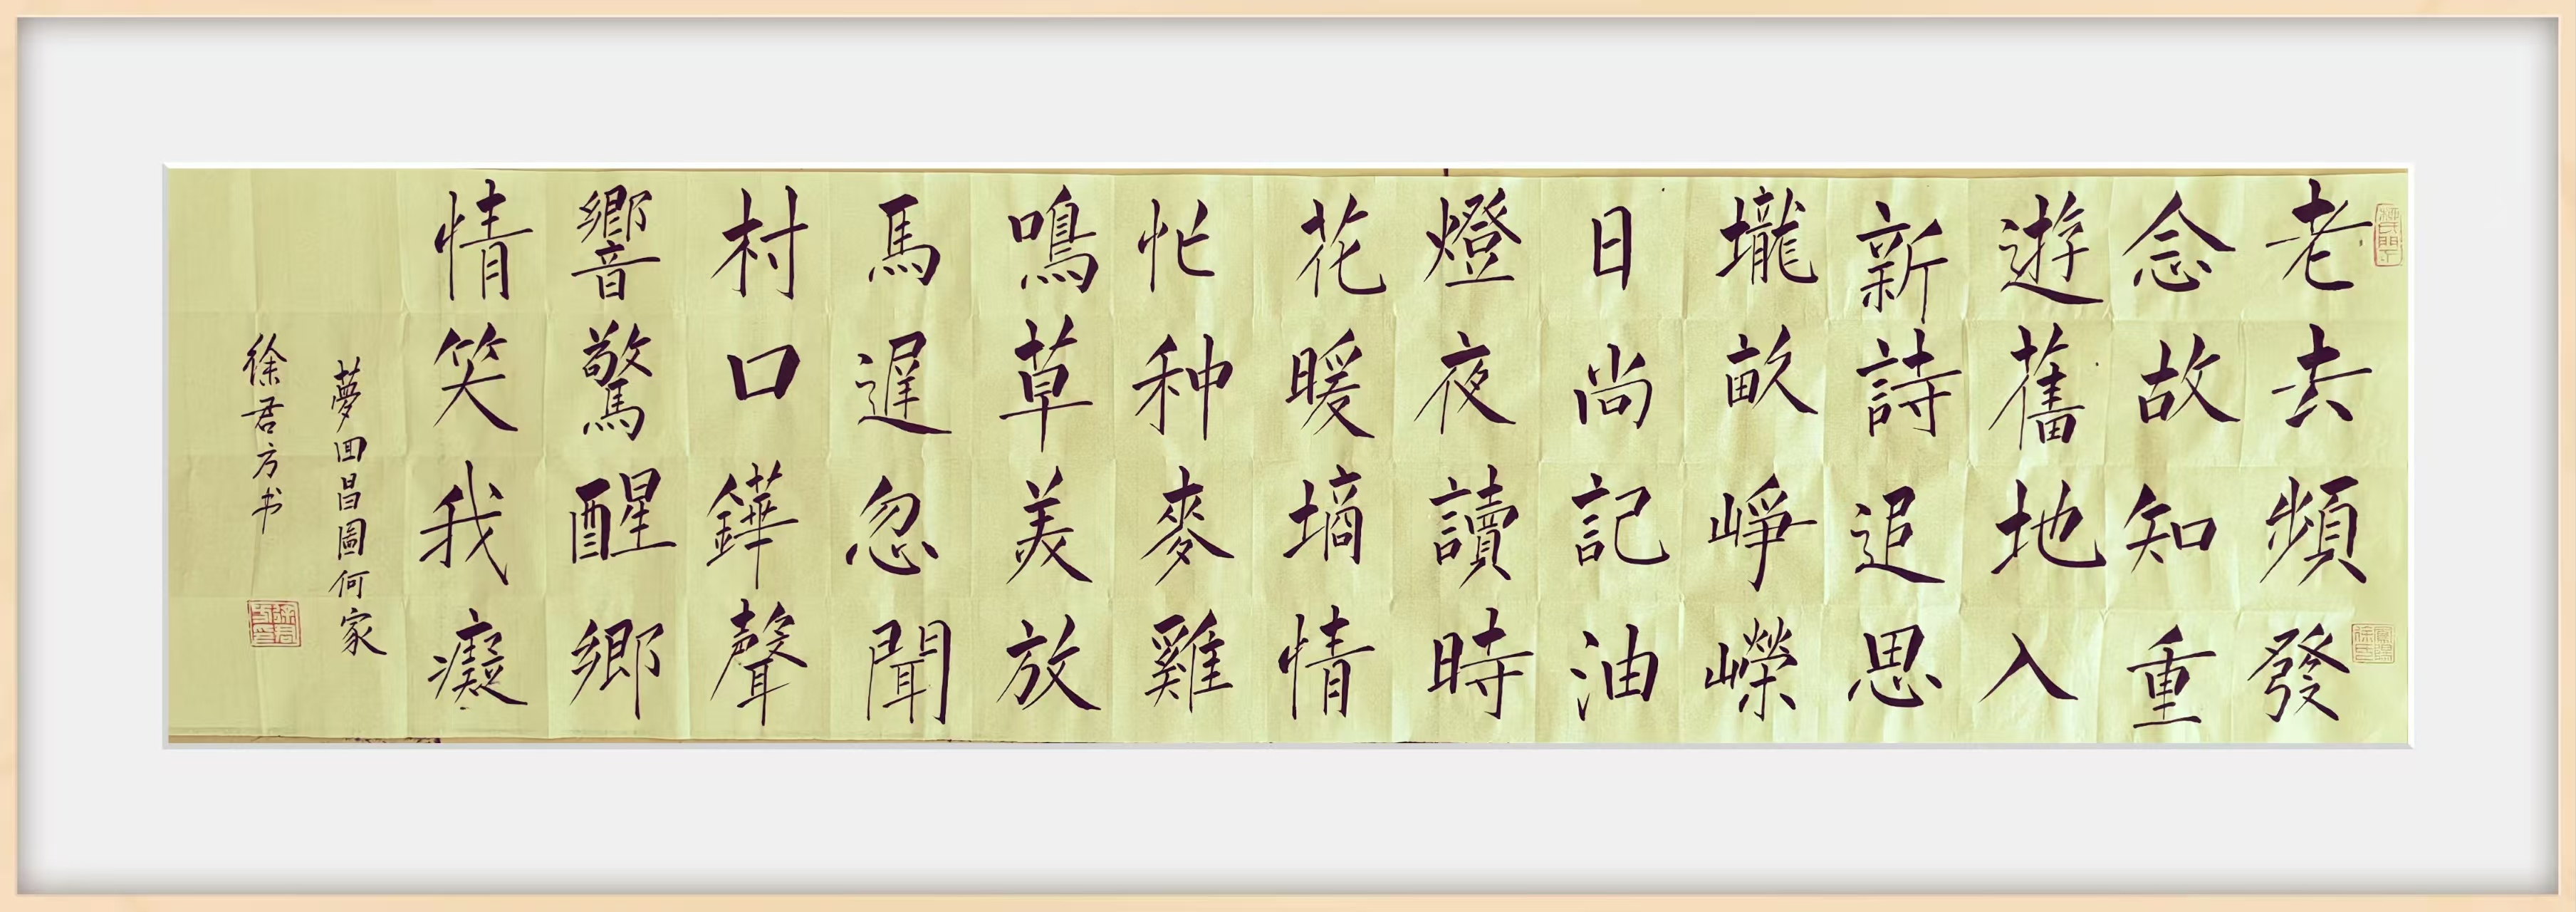 老去頻發
念故知重
遊舊地入
新詩追思
壠畝崢嶸
日尚記油
燈夜讀時
花暖墒情
忙种麥雞
鳴草美放
馬遲忽聞
村口鏵聲
響驚醒鄉
情笑我癡
夢回昌圖何家
徐君方书